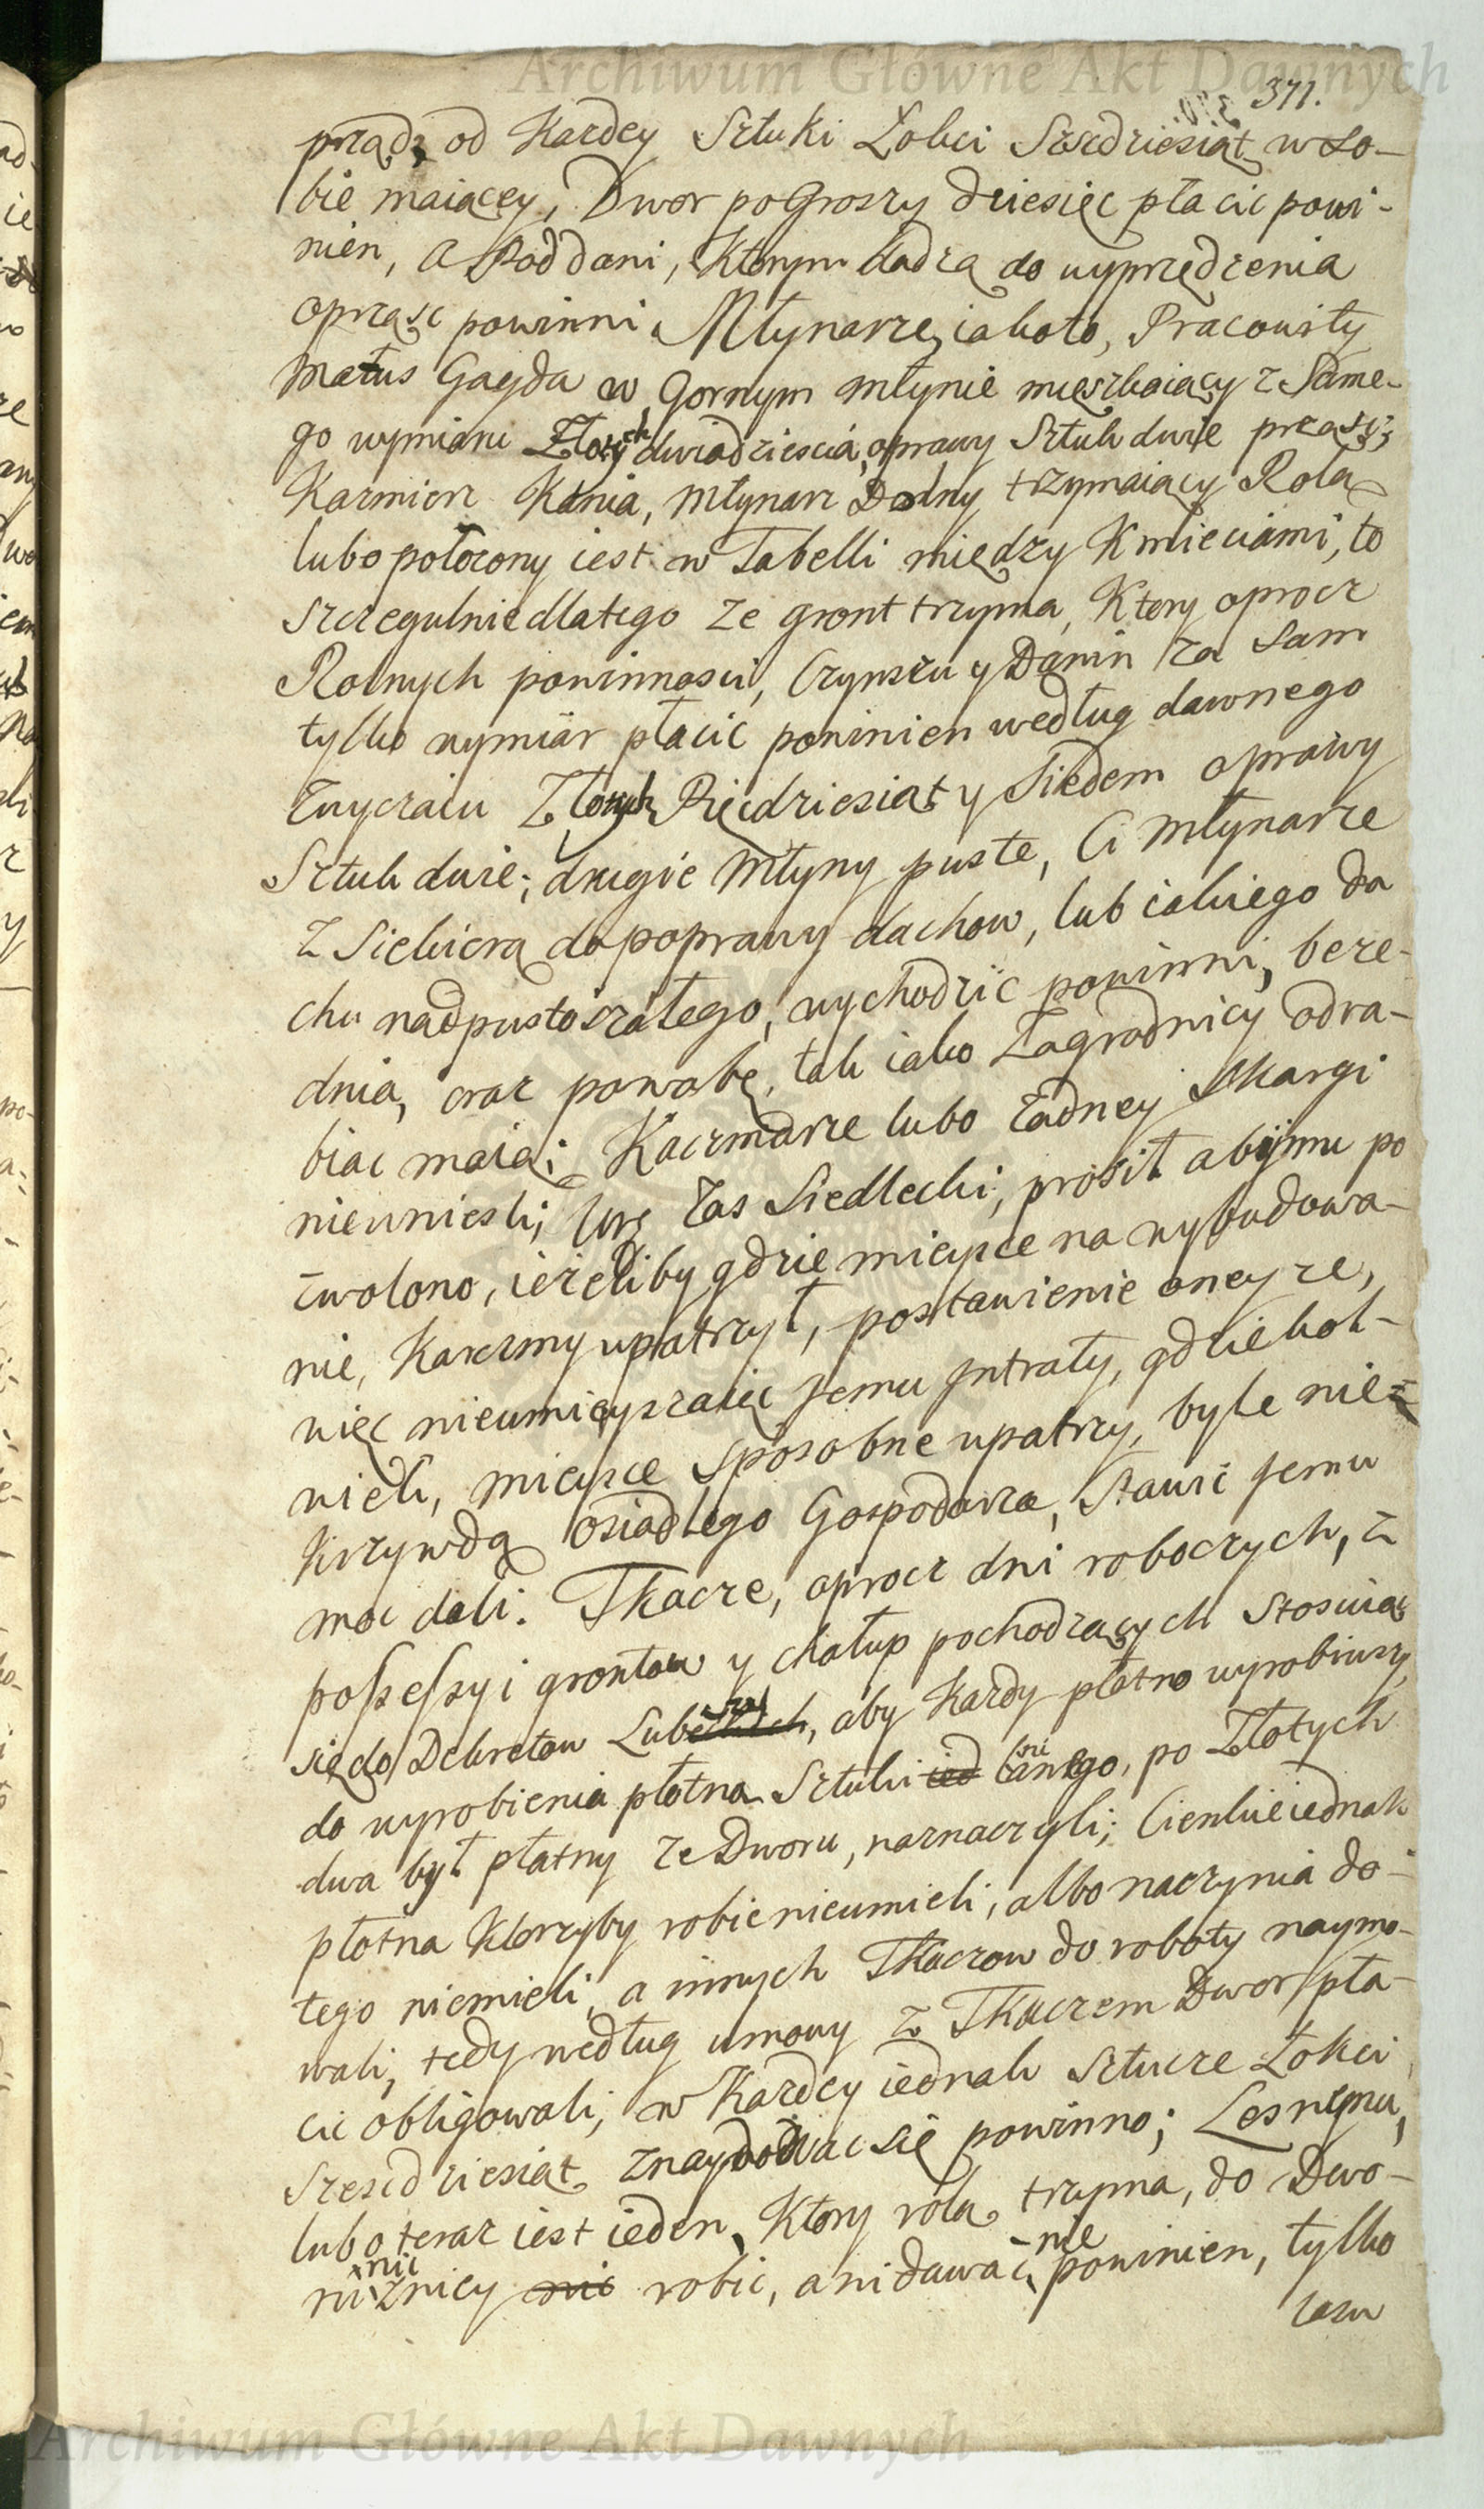 Archiwum Główne Akt Dawnych
371.
przędą, od Kazdey Sztuki Łokci Szesdziesiąt w So-
bie maiącey, Dwor po Groszy dziesięc płacic powi-
nien, a Poddani, Ktorym dadzą do uyprzędzenia
oprząsc powinni. Młynarze, iako to, Pracowity
Matus Gayda w Gornym młynie mieszkaiący z Same-
go wymiaru Złotych dwadziescia, oprawy Sztuk dwie prząsc;
Kazmierz Kania, Młynarz Dolny trzymaiący Rolą
lubo położony iest w Tabelli między Kmieciami, to
szczegulnie dlatego ze gront trzyma, Ktory oprocz
Rolnych powinnosci, Czynszu y Danin za sam
tylko wymiar płacic powinien według dawnego
zwyczaiu Złotych Pięcdziesiąt y Siedem oprawy
Sztuk dwie; drugie Młyny puste, Ci Młynarze
z Siekierą do poprawy dachow, lub iakiego da
chu nadpustoszałego, wychodzic powinni, beze-
dnia, oraz powabę, tak iako Zagrodnicy odra-
biac maią; Kaczmarze lubo żadney Skargi
niewniesli, Urz zas Siedlecki, prosił aby mu po
zwolono, ieżeliby gdzie mieysce na wybudowa-
nie, Karczmy upatrzył, postawienie oney ze,
więc nieumieyszaiąc Jemu Intraty, gdziekol-
wiek, mieysce sposobne upatrzy, byle niez
krzywdą osiadłego Gospodarza, Stawic Jemu
moc dali. Tkacze, oprocz dni roboczych, z
possessyi grontow y chałup pochodzących Stosuiąc
się do Dekretow aby Kazdy płotno wyrobiwszy,
do wyrobienia płotna Sztuki po Złotych
dwa był płatny ze Dworu, naznaczyli; Cienkie iednak
płotna Ktorzyby robic nieumieli, albo naczynia do-
tego niemieli, a innych Tkaczow do roboty naymo-
wali, tedy według umowy z Tkaczem Dwor pła-
cic obligowali; w Kazdey iednak Sztucze Łokci
Szescdziesiąt znaydowac się powinno; Lesnemu,
lubo teraz iest ieden, Ktory rolą trzyma, do Dwo-
nic nie
rniznicy nic robic, ani dawac powinien, tylko
lasu
Archiwum Główne Akt Dawnych